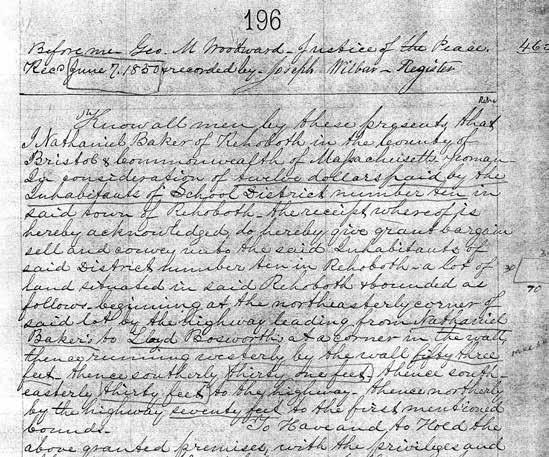 196
Before me Geo. M Woodward - Justice of the Peace.
Rec'd June 7. 1850 & recorded by Joseph Wilbar - Register
462
Know all men by these presents that
I Nathaniel Baker of Rehoboth in the County of
Bristol & Commonwealth of Massachusetts yeoman
In consideration of twelve dollars paid by the
Inhabitants of School District number ten in
said town of Rehoboth - the receipt whereof is
hereby acknowledged, do hereby give grant bargain
sell and convey unto the said Inhabitants of
said District number ten in Rehoboth - a lot of
land situated in said Rehoboth & bounded as
follows - beginning at the northeasterly corner of
said lot by the highway leading from Nathaniel
Baker's to Lloyd Bosworth's at a corner in the wall,
thence running westerly by the wall fifty three
feet thence southerly thirty one feet, thence south
easterly thirty feet to the highway - thence northerly
by the highway seventy feet to the first mentioned
bounds. To Have and to Hold the
above granted premises, with the privileges and
30
70